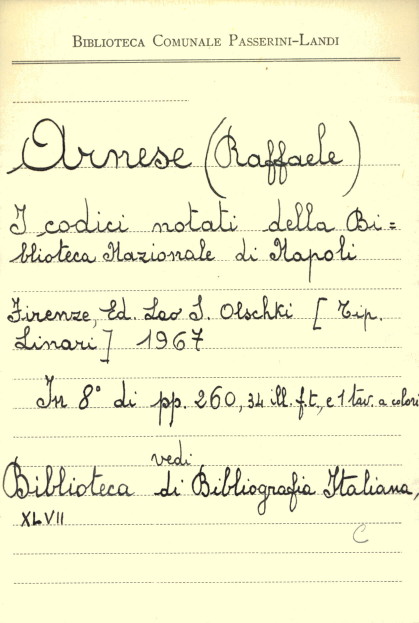 BIBLIOTECA COMUNALE PASSERINI-LANDI
Arnese (Raffaele)
I codici notati della Bi=
blioteca Nazionale di Napoli
Firenze, Ed. Leo S. Olschki [Tip.
Linari] 1967
In 8° di pp. 260, 34 ill. f.t., e 1 tav. a colori
vedi
Biblioteca di Bibliografia Italiana,
XLVII
C